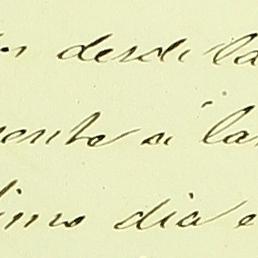 desde la
ente á la
imo dia e